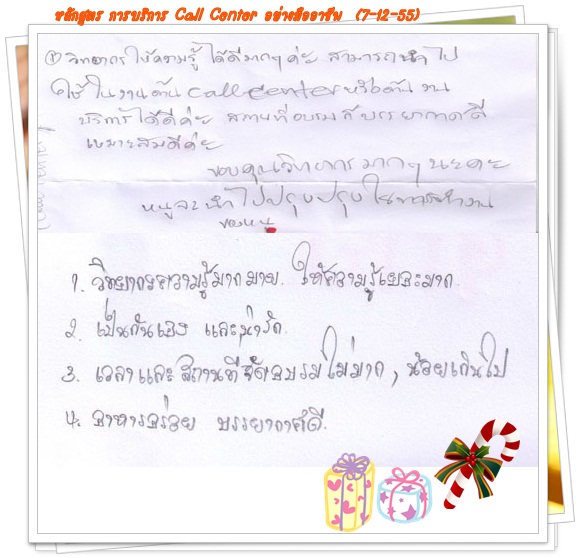 หลักสูตร การบริการ Call Center อย่างมืออาชีพ (7-12-55)
วิทยากรให้ความรู้ได้ดีมากๆค่ะ สามารถนำไป
ใช้ในงานด้าน Call Center หรือด้านงาน
บริการได้ดีค่ะ สถานที่อบรมก็บรรยากาศดี
เหมาะสมดีค่ะ
ขอบคุณวิทยากรมากๆนะคะ
หนูจะนำไปปรุงปรุงในการทำงาน
ของหนู
1. วิทยากรความรู้มากมาย. ให้ความรู้เยอะมาก.
2. เป็นกันเอง และน่ารัก.
3. เวลาและสถานที่จัดอบรมไม่มาก, น้อยเกินไป
4. อาหารอร่อย บรรยากาศดี.